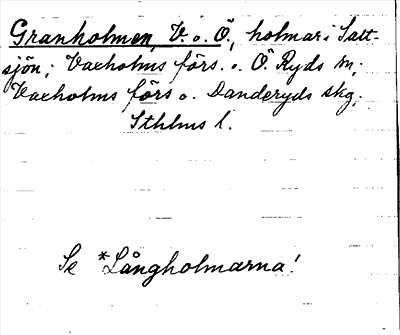 Granholmen, V. o. Ö., holmar i Salt-
sjön; Vaxholms förs. o. Ö Ryds sn;
Vaxholms förs o. Danderyds skg,
Sthlms l.
Se *Långholmarna!